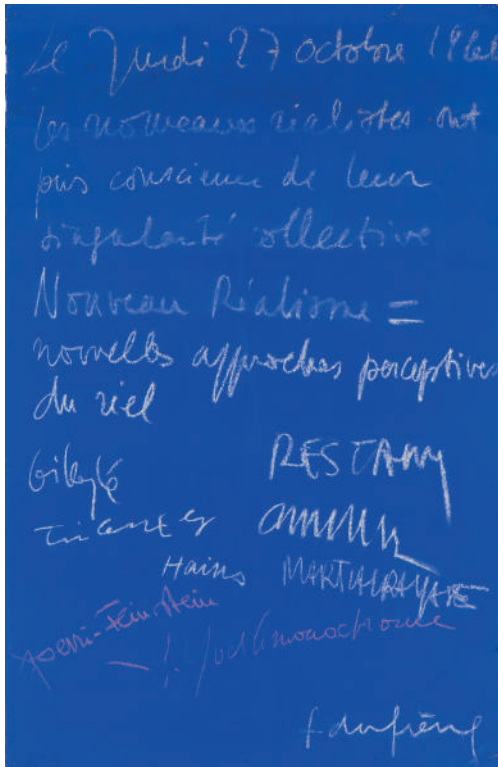 Le Jeudi 27 octobre 1960
Les nouveaux réalistes ont
pris conscience de leur
singularité collective
Nouveau Réalisme =
nouvelles approches perceptives
du réel
RESTANY
Tinguely arman
Hains MARTIALRAYSSE
Spoerri-Feinstein
le monochrome
f dufrêne